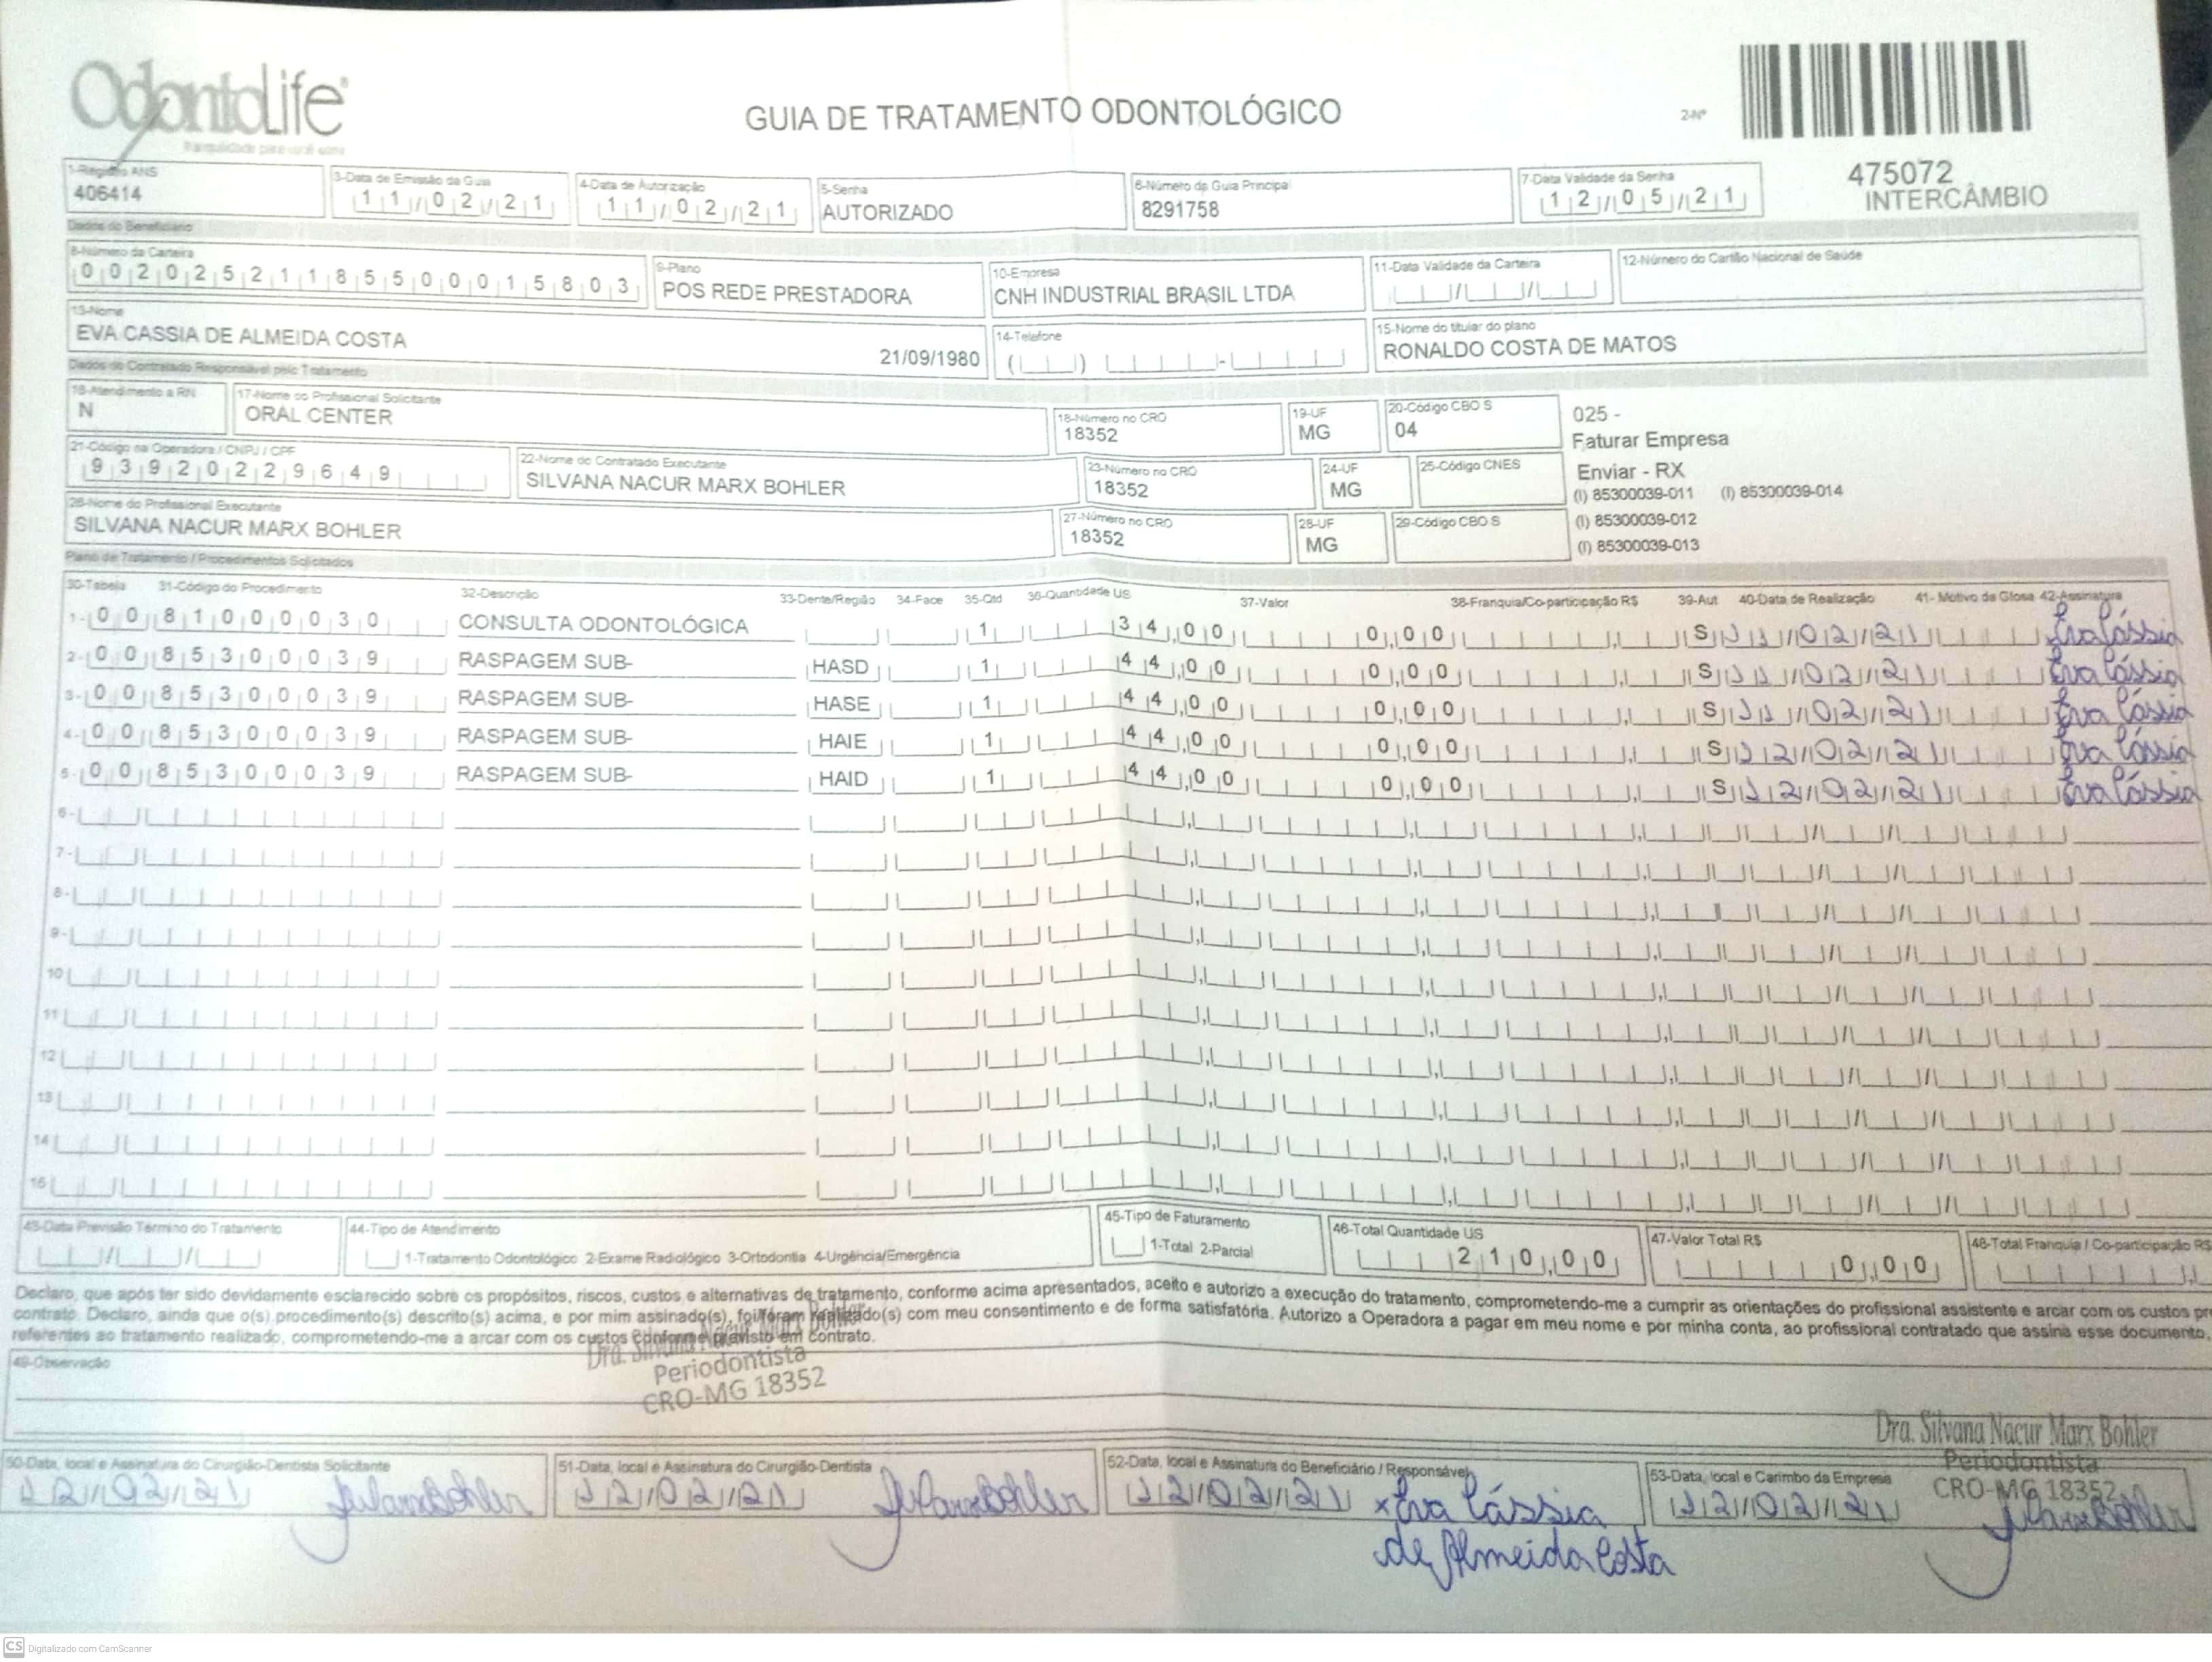 OdontoLife
Tranquilidade para você sorrir
GUIA DE TRATAMENTO ODONTOLÓGICO
2-Nº
475072
INTERCÂMBIO
1-Registro ANS
406414
3-Data de Emissão da Guia
11/02/21
4-Data de Autorização
11/02/21
5-Senha
AUTORIZADO
6-Número da Guia Principal
8291758
7-Data Validade da Senha
12/05/21
Dados do Beneficiário
8-Número da Carteira
00202521185500015803
9-Plano
POS REDE PRESTADORA
10-Empresa
CNH INDUSTRIAL BRASIL LTDA
11-Data Validade da Carteira
12-Número do Cartão Nacional de Saúde
13-Nome
EVA CASSIA DE ALMEIDA COSTA
21/09/1980
14-Telefone
15-Nome do titular do plano
RONALDO COSTA DE MATOS
Dados do Contratado Responsável pelo Tratamento
16-Atendimento a RN
N
17-Nome do Profissional Solicitante
ORAL CENTER
18-Número no CRO
18352
19-UF
MG
20-Código CBO S
04
025 -
Faturar Empresa
21-Código na Operadora / CNPJ / CPF
93920229649
22-Nome do Contratado Executante
SILVANA NACUR MARX BOHLER
23-Número no CRO
18352
24-UF
MG
25-Código CNES
Enviar - RX
(I) 85300039-011 (I) 85300039-014
(I) 85300039-012
(I) 85300039-013
26-Nome do Profissional Executante
SILVANA NACUR MARX BOHLER
27-Número no CRO
18352
28-UF
MG
29-Código CBO S
Plano de Tratamento / Procedimentos Solicitados
30-Tabela 31-Código do Procedimento 32-Descrição 33-Dente/Região 34-Face 35-Qtd 36-Quantidade US 37-Valor 38-Franquia/Co-participação R$ 39-Aut 40-Data de Realização 41- Motivo da Glosa 42-Assinatura
1- 00 81000030 CONSULTA ODONTOLÓGICA 1 34,00 0,00 S 11/02/21 Eva Cássia
2- 00 85300039 RASPAGEM SUB- HASD 1 44,00 0,00 S 11/02/21 Eva Cássia
3- 00 85300039 RASPAGEM SUB- HASE 1 44,00 0,00 S 11/02/21 Eva Cássia
4- 00 85300039 RASPAGEM SUB- HAIE 1 44,00 0,00 S 12/02/21 Eva Cássia
5- 00 85300039 RASPAGEM SUB- HAID 1 44,00 0,00 S 12/02/21 Eva Cássia
6-
7-
8-
9-
10
11
12
13
14
15
43-Data Previsão Término do Tratamento
44-Tipo de Atendimento
1-Tratamento Odontológico 2-Exame Radiológico 3-Ortodontia 4-Urgência/Emergência
45-Tipo de Faturamento
1-Total 2-Parcial
46-Total Quantidade US
210,00
47-Valor Total R$
0,00
48-Total Franquia / Co-participação R$
Declaro, que após ter sido devidamente esclarecido sobre os propósitos, riscos, custos e alternativas de tratamento, conforme acima apresentados, aceito e autorizo a execução do tratamento, comprometendo-me a cumprir as orientações do profissional assistente e arcar com os custos pre
contrato. Declaro, ainda que o(s) procedimento(s) descrito(s) acima, e por mim assinado(s), foi/foram realizado(s) com meu consentimento e de forma satisfatória. Autorizo a Operadora a pagar em meu nome e por minha conta, ao profissional contratado que assina esse documento,
referentes ao tratamento realizado, comprometendo-me a arcar com os custos conforme previsto em contrato.
49-Observação
Dra. Silvana Nacur Marx Bohler
Periodontista
CRO-MG 18352
Dra. Silvana Nacur Marx Bohler
Periodontista
CRO-MG 18352
50-Data, local e Assinatura do Cirurgião-Dentista Solicitante
12/02/21 SMarxBohler
51-Data, local e Assinatura do Cirurgião-Dentista
12/02/21 SMarxBohler
52-Data, local e Assinatura do Beneficiário / Responsável
12/02/21 x Eva Cássia
de Almeida Costa
53-Data, local e Carimbo da Empresa
12/02/21 SMarxBohler
CS Digitalizado com CamScanner